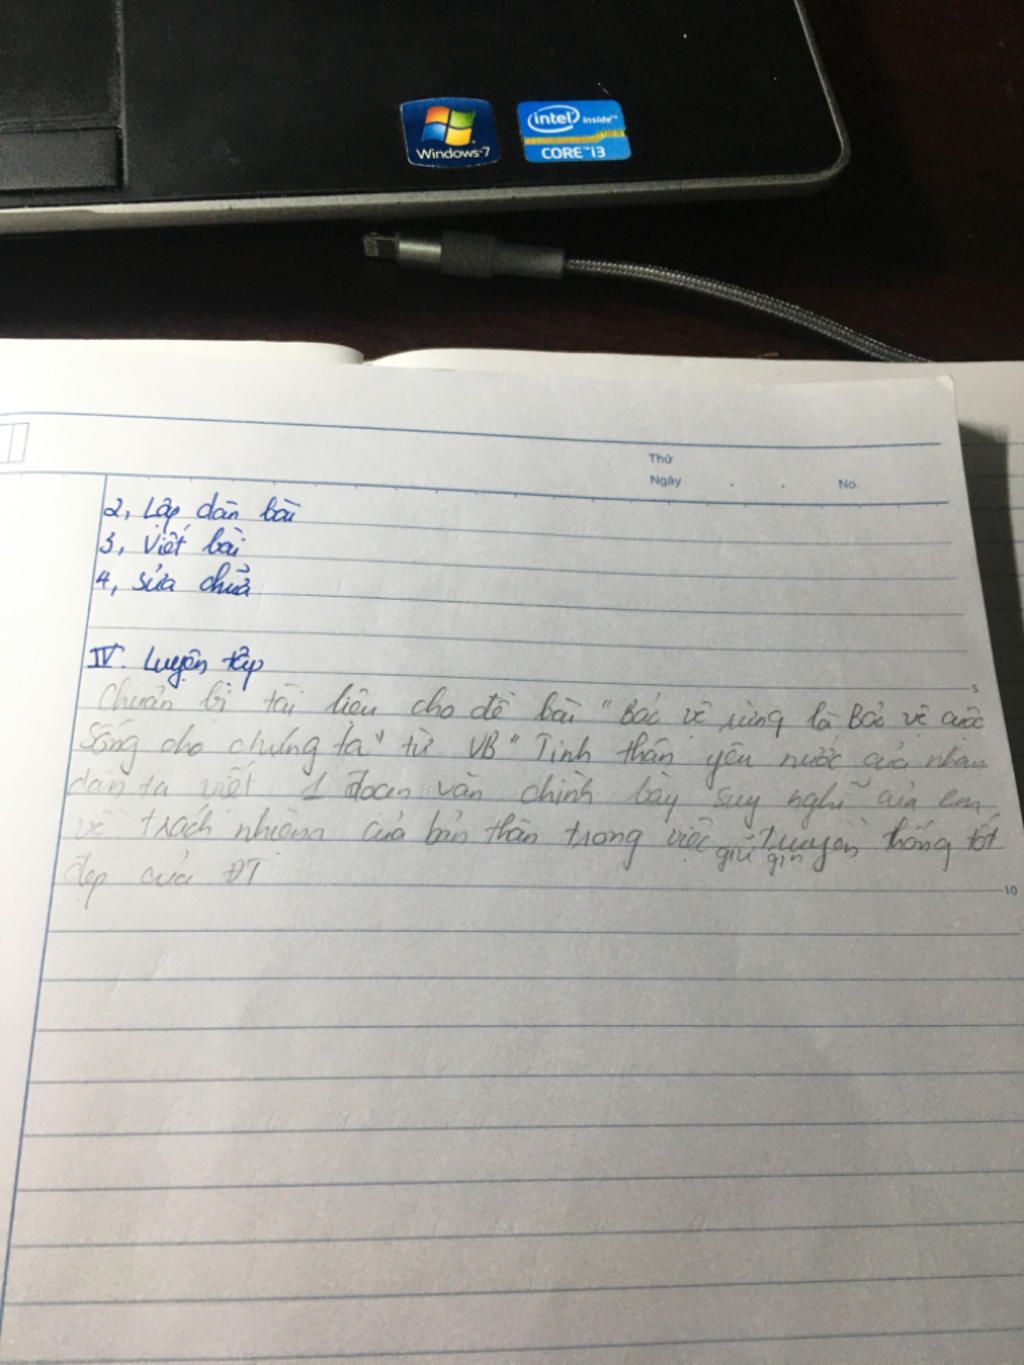 Windows 7
intel inside™
CORE™i3
Thứ
Ngày . . No.
2, Lập dàn bài
3, Viết bài
4, sửa chữa
IV. Luyện tập
5
Chuẩn bị tài liệu cho đề bài "Bảo vệ rừng là Bảo vệ cuộc
sống cho chúng ta" từ VB "Tinh thần yêu nước của nhân
dân ta viết 1 đoạn văn chình bày suy nghĩ của em
về trách nhiệm của bản thân trong việc giữ gìn truyền thống tốt
đẹp của ĐT
10